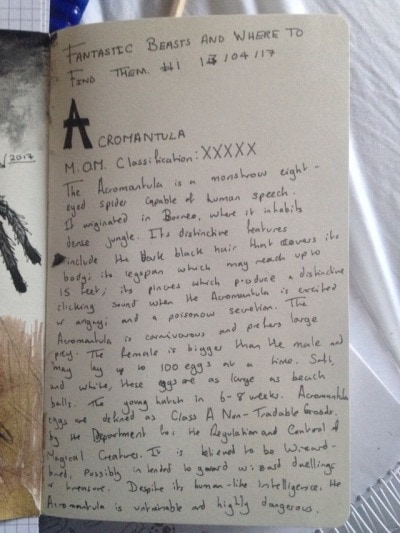 FANTASTIC BEASTS AND WHERE TO
FIND THEM. #1 13/04/17
ACROMANTULA
M.O.M. Classification: XXXXX
2017
The Acromantula is a monstrous eight-
eyed spider capable of human speech.
It originated in Borneo, where it inhabits
dense jungle. Its distinctive features
include the thick black hair that covers its
body; its legspan which may reach up to
15 feet; its pincers which produce a distinctive
clicking sound when the Acromantula is excited
or angry; and a poisonous secretion. The
Acromantula is carnivorous and prefers large
prey. The female is bigger than the male and
may lay up to 100 eggs at a time. Soft,
and white, these eggs are as large as beach
balls. The young hatch in 6-8 weeks. Acromantula
eggs are defined as Class A Non-Tradable Goods.
by the Department for the Regulation and Control of
Magical Creatures. It is believed to be Wizard-
bred, possibly intended to guard wizard dwellings
or treasure. Despite its human-like intelligence, the
Acromantula is untrainable and highly dangerous.